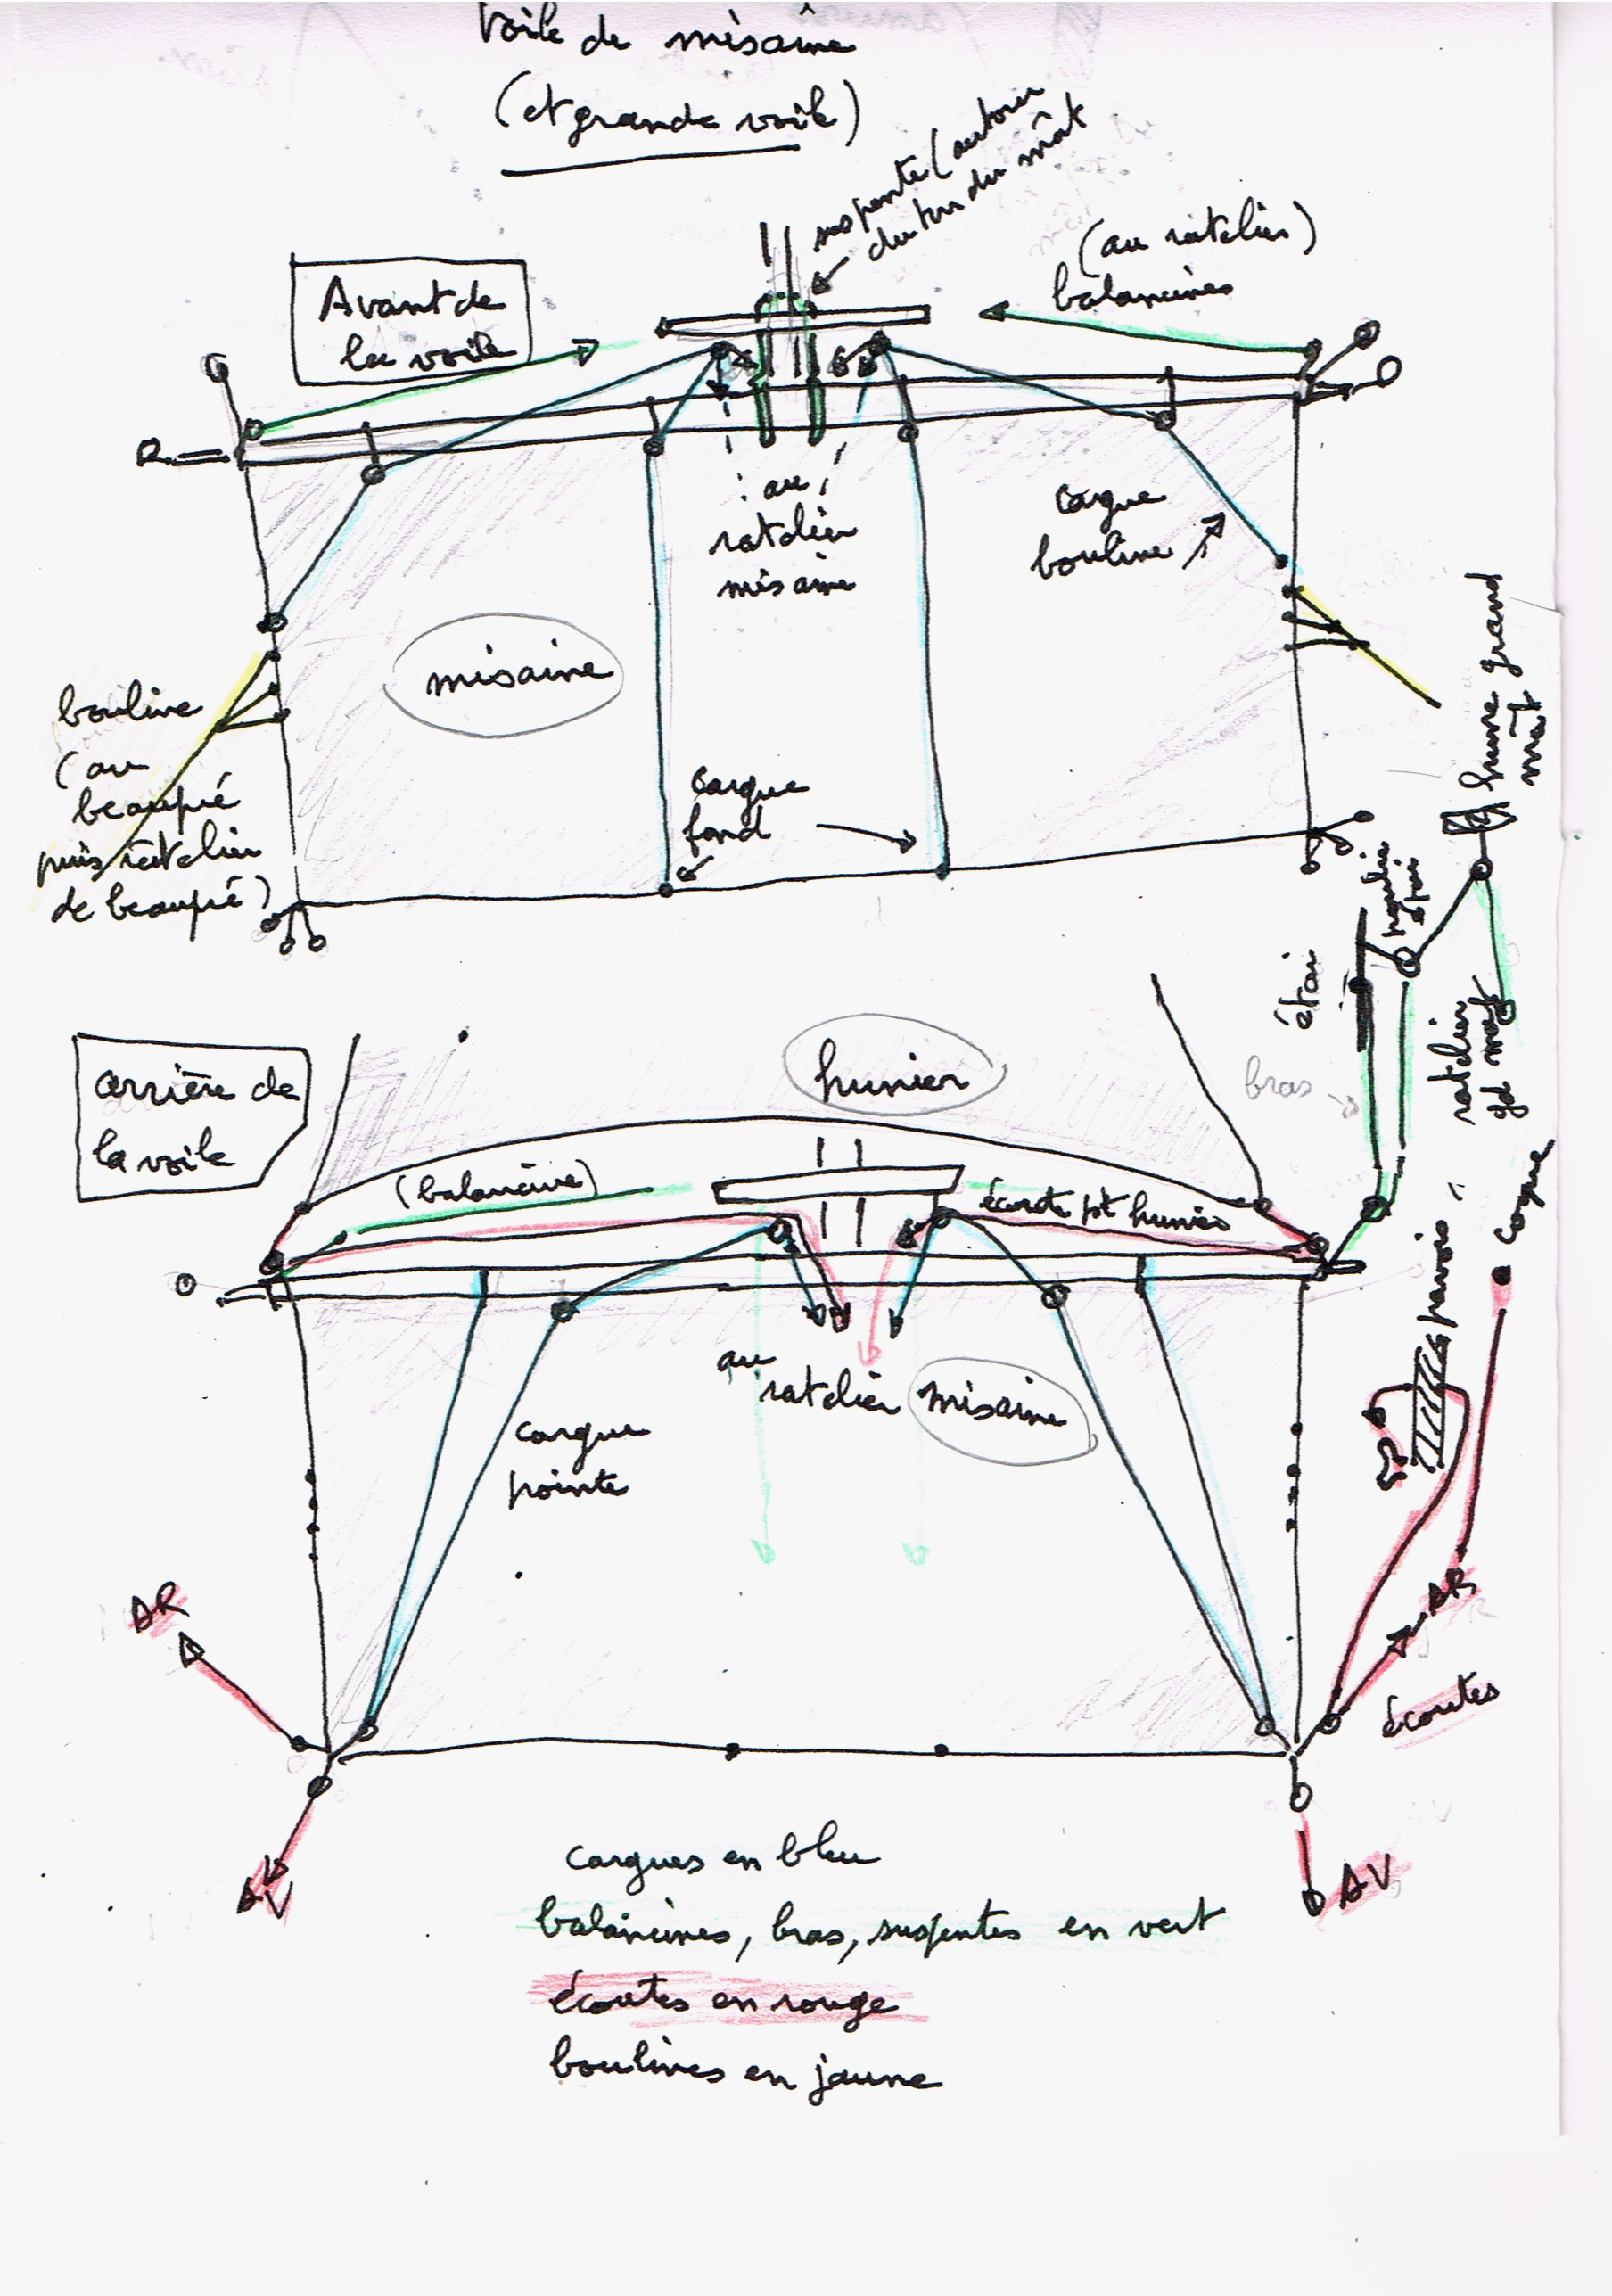 Voile de misaine
(et grande voile)
suspente (autour
du ton du mât
(au ratelier)
balancines
Avant de
la voile
au
ratelier
misaine
cargue
bouline
misaine
bouline
(au
beaupré
puis ratelier
de beaupré)
cargue
fond
hune grand
mât
poulie
étai
étai
ratelier
gd mat
bras
arrière de
la voile
hunier
(balancine)
écoute pt hunier
pavois
coque
au
ratelier
misaine
cargue
pointe
AR
AR
écoutes
AV
AV
cargues en bleu
balancines, bras, suspentes en vert
écoutes en rouge
boulines en jaune